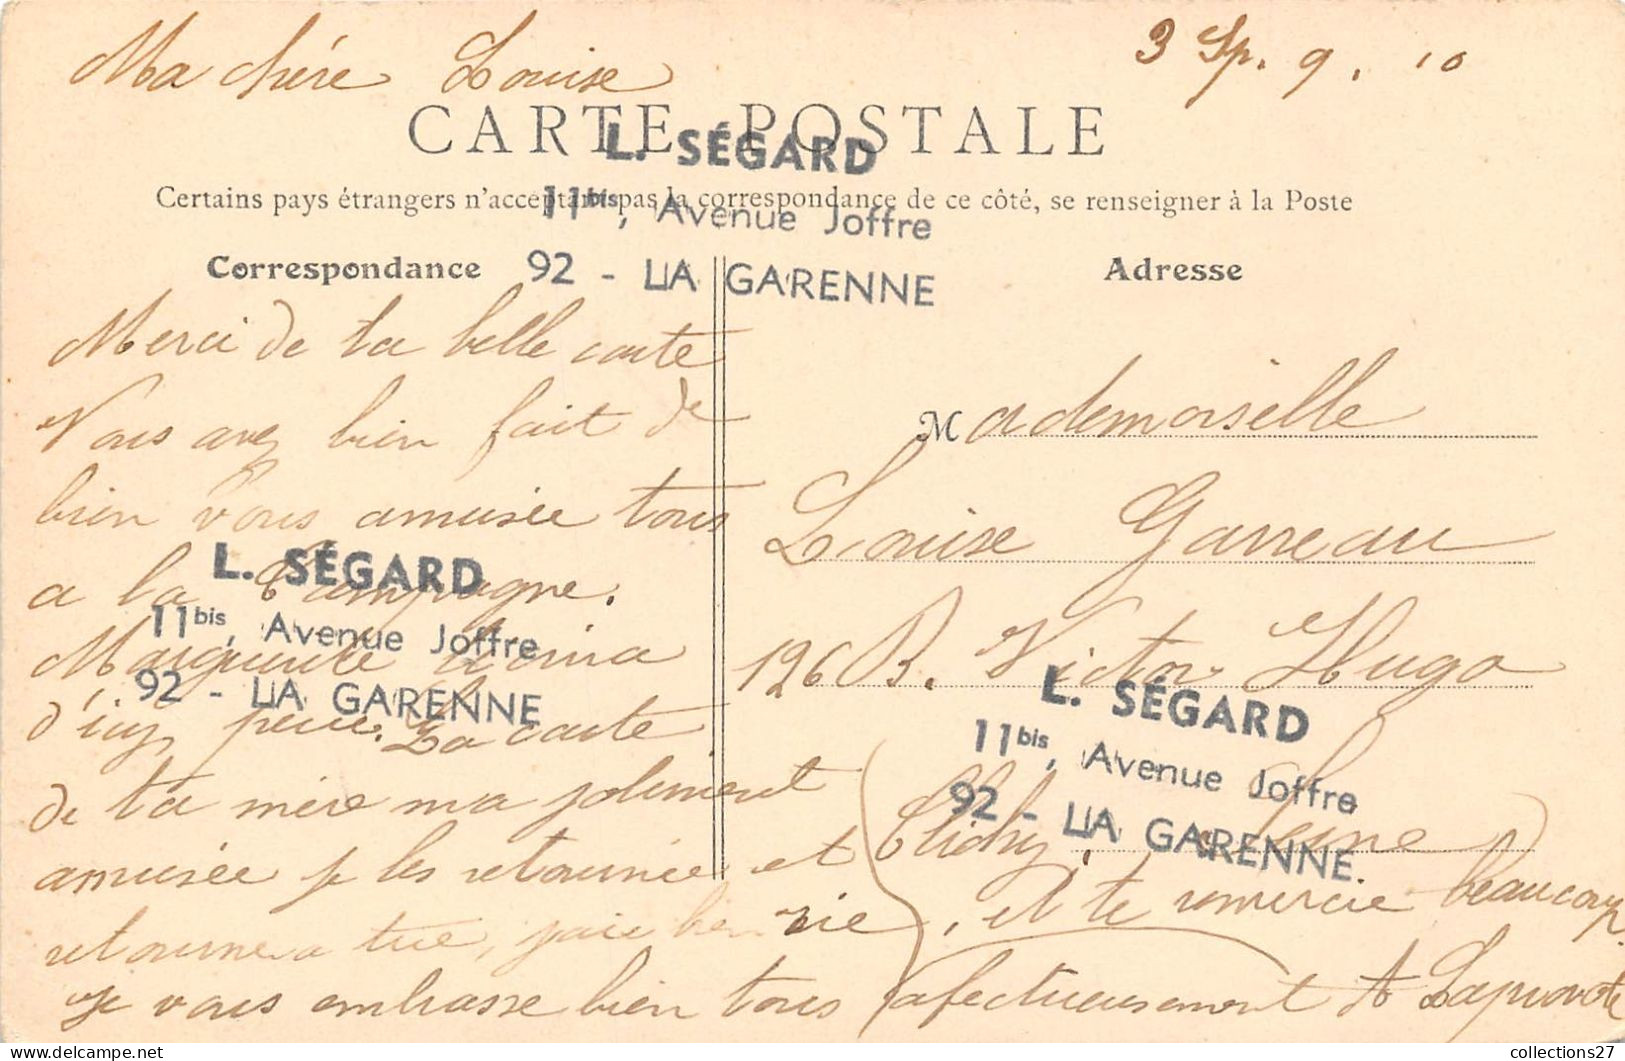 Ma chére Louise
3 Sp. 9. 10
CARTE POSTALE
L. SÉGARD
11bis, Avenue Joffre
92 - LA GARENNE
Certains pays étrangers n'acceptant pas la correspondance de ce côté, se renseigner à la Poste
Correspondance
Merci de ta belle carte
Vous avez bien fait de
bien vous amusée tous
a la Campagne.
Marguerite
d'icy peu. La carte
de ta mère ma joliment
amusée je les retournée et
retourne a tue, jaie bien rie, et te remercie beaucoup
Je vous embrasse bien tous afectueusement A Laprovote
L. SÉGARD
11bis, Avenue Joffre
92 - LA GARENNE
Adresse
Mademoiselle
Louise Garreau
126 B. Victor Hugo
Clichy. Seine
L. SÉGARD
11bis, Avenue Joffre
92 - LA GARENNE.
collections27